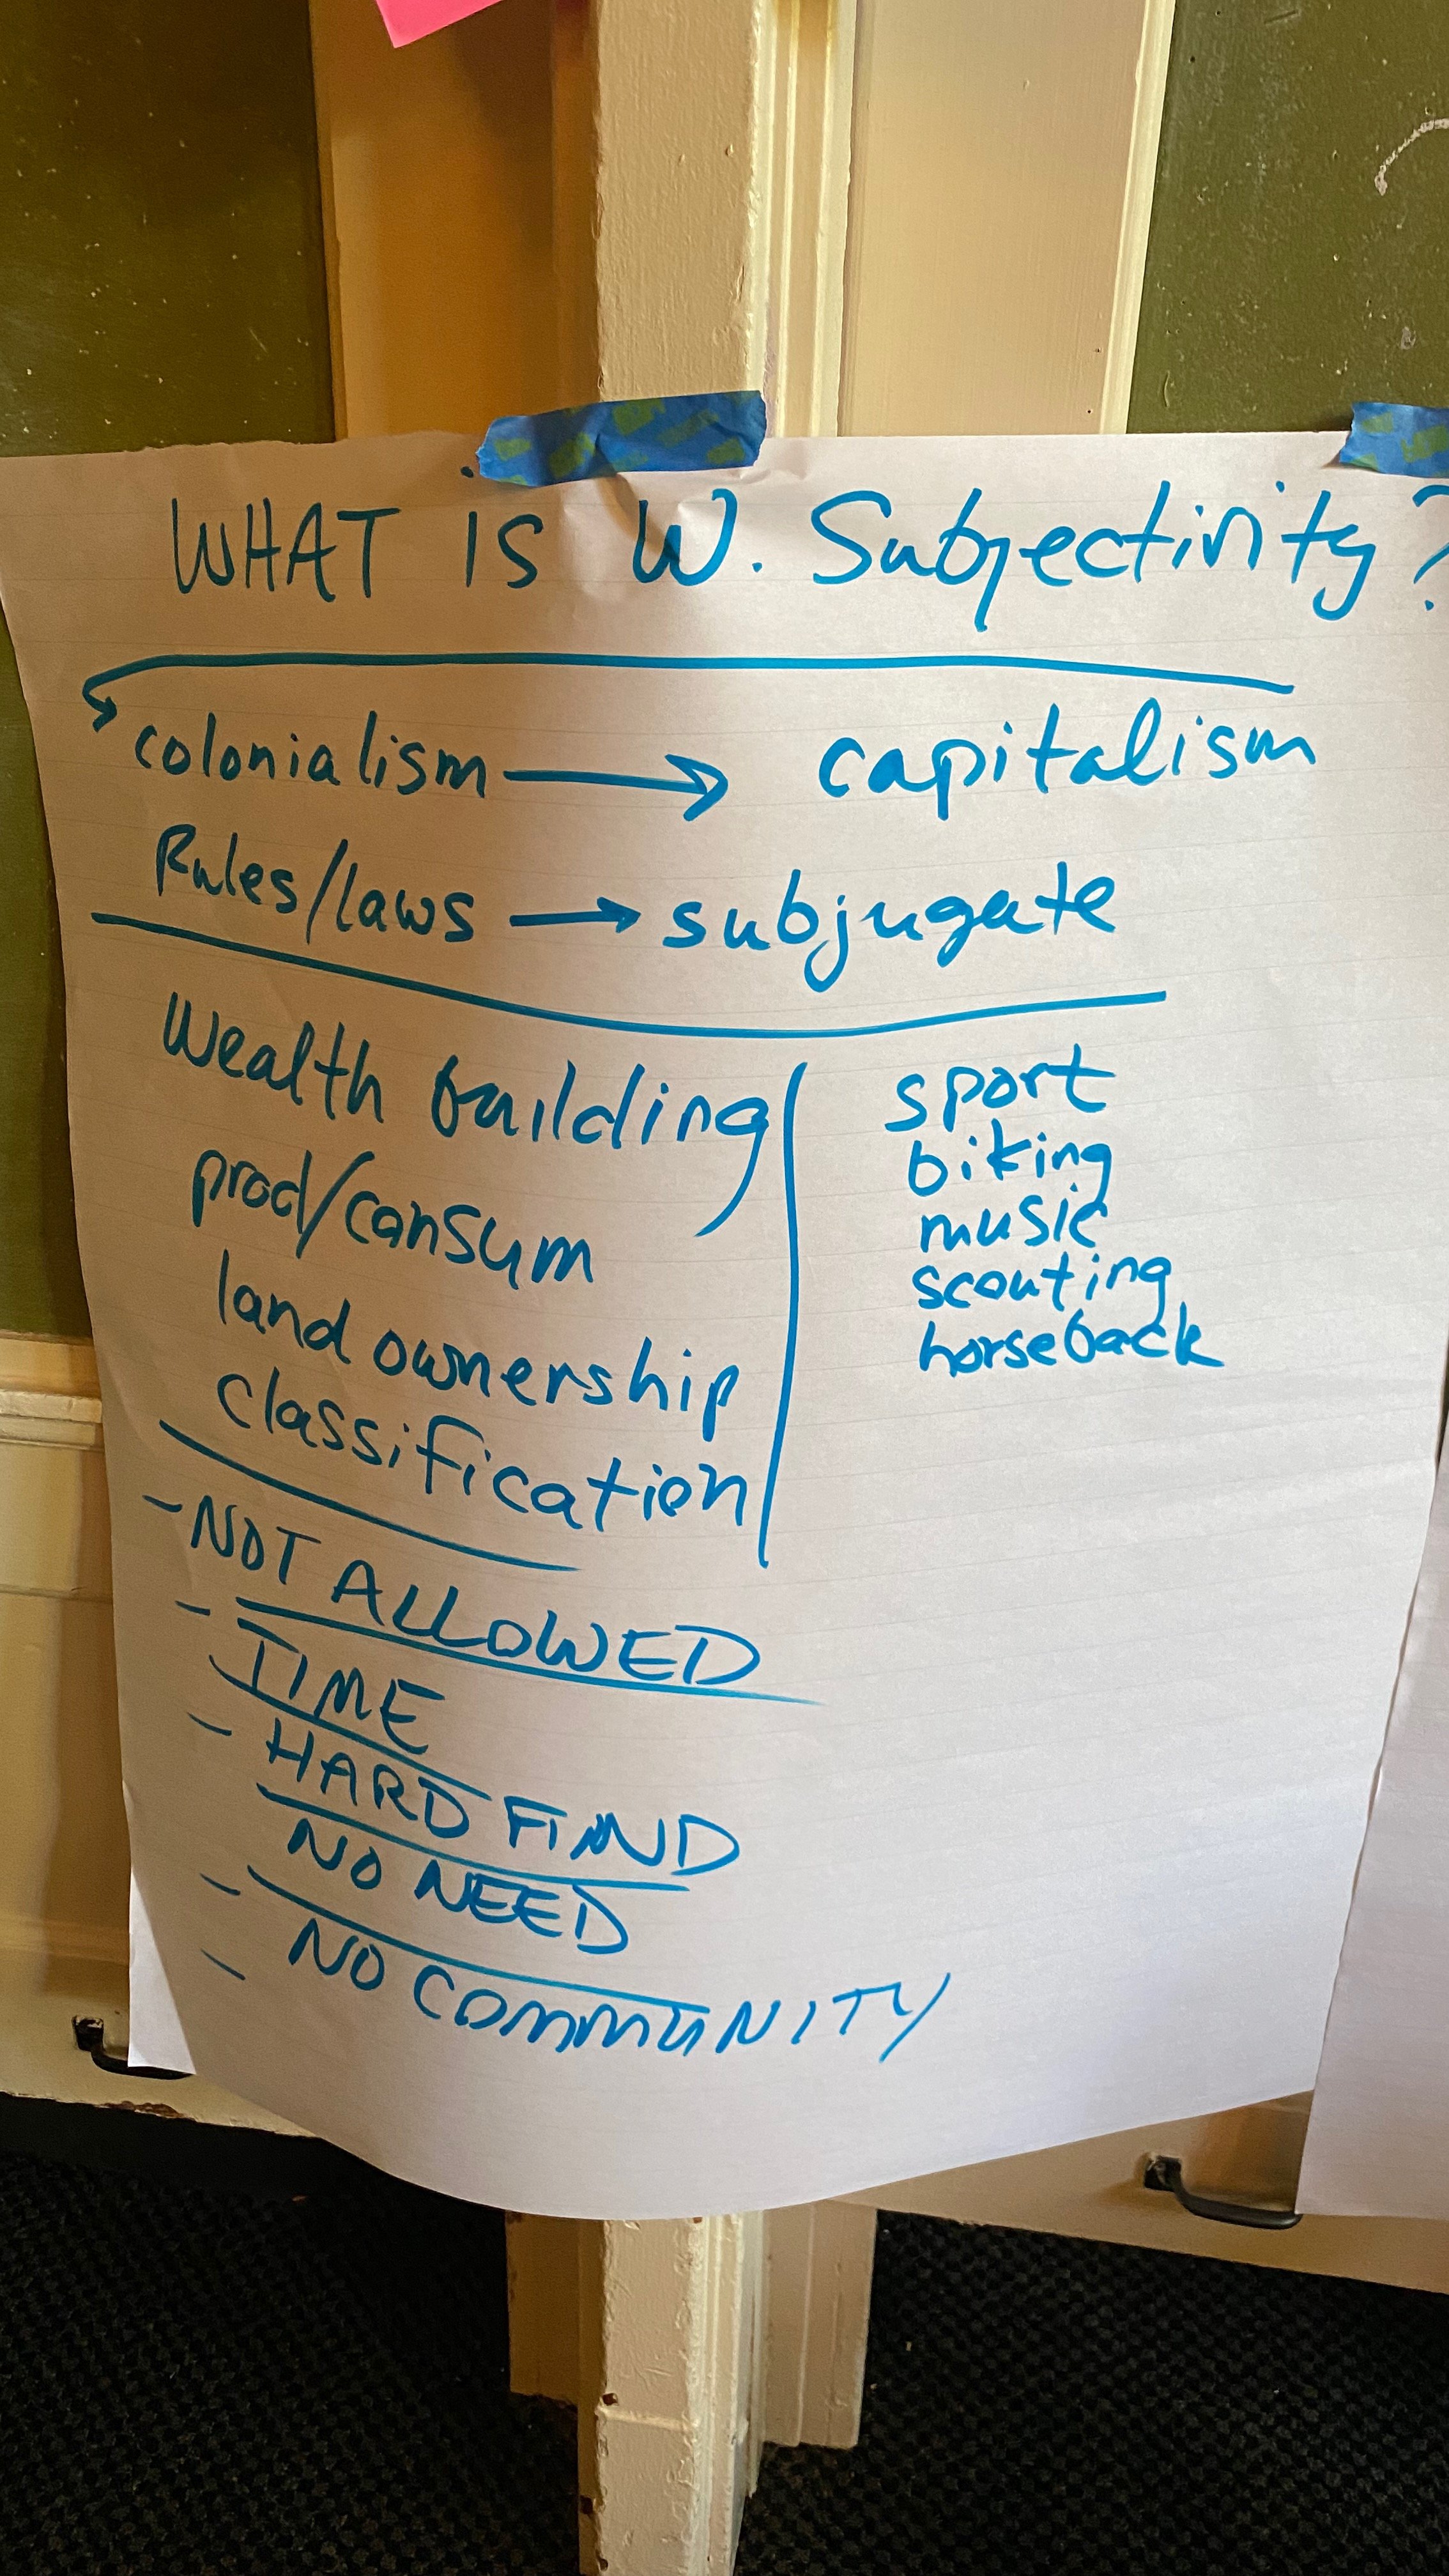 WHAT IS W. Subjectivity?
colonialism → capitalism
Rules/laws → subjugate
Wealth building
prod/consum
land ownership
classification
sport
biking
music
scouting
horseback
- NOT ALLOWED
- TIME
- HARD FIND
- NO NEED
- NO COMMUNITY